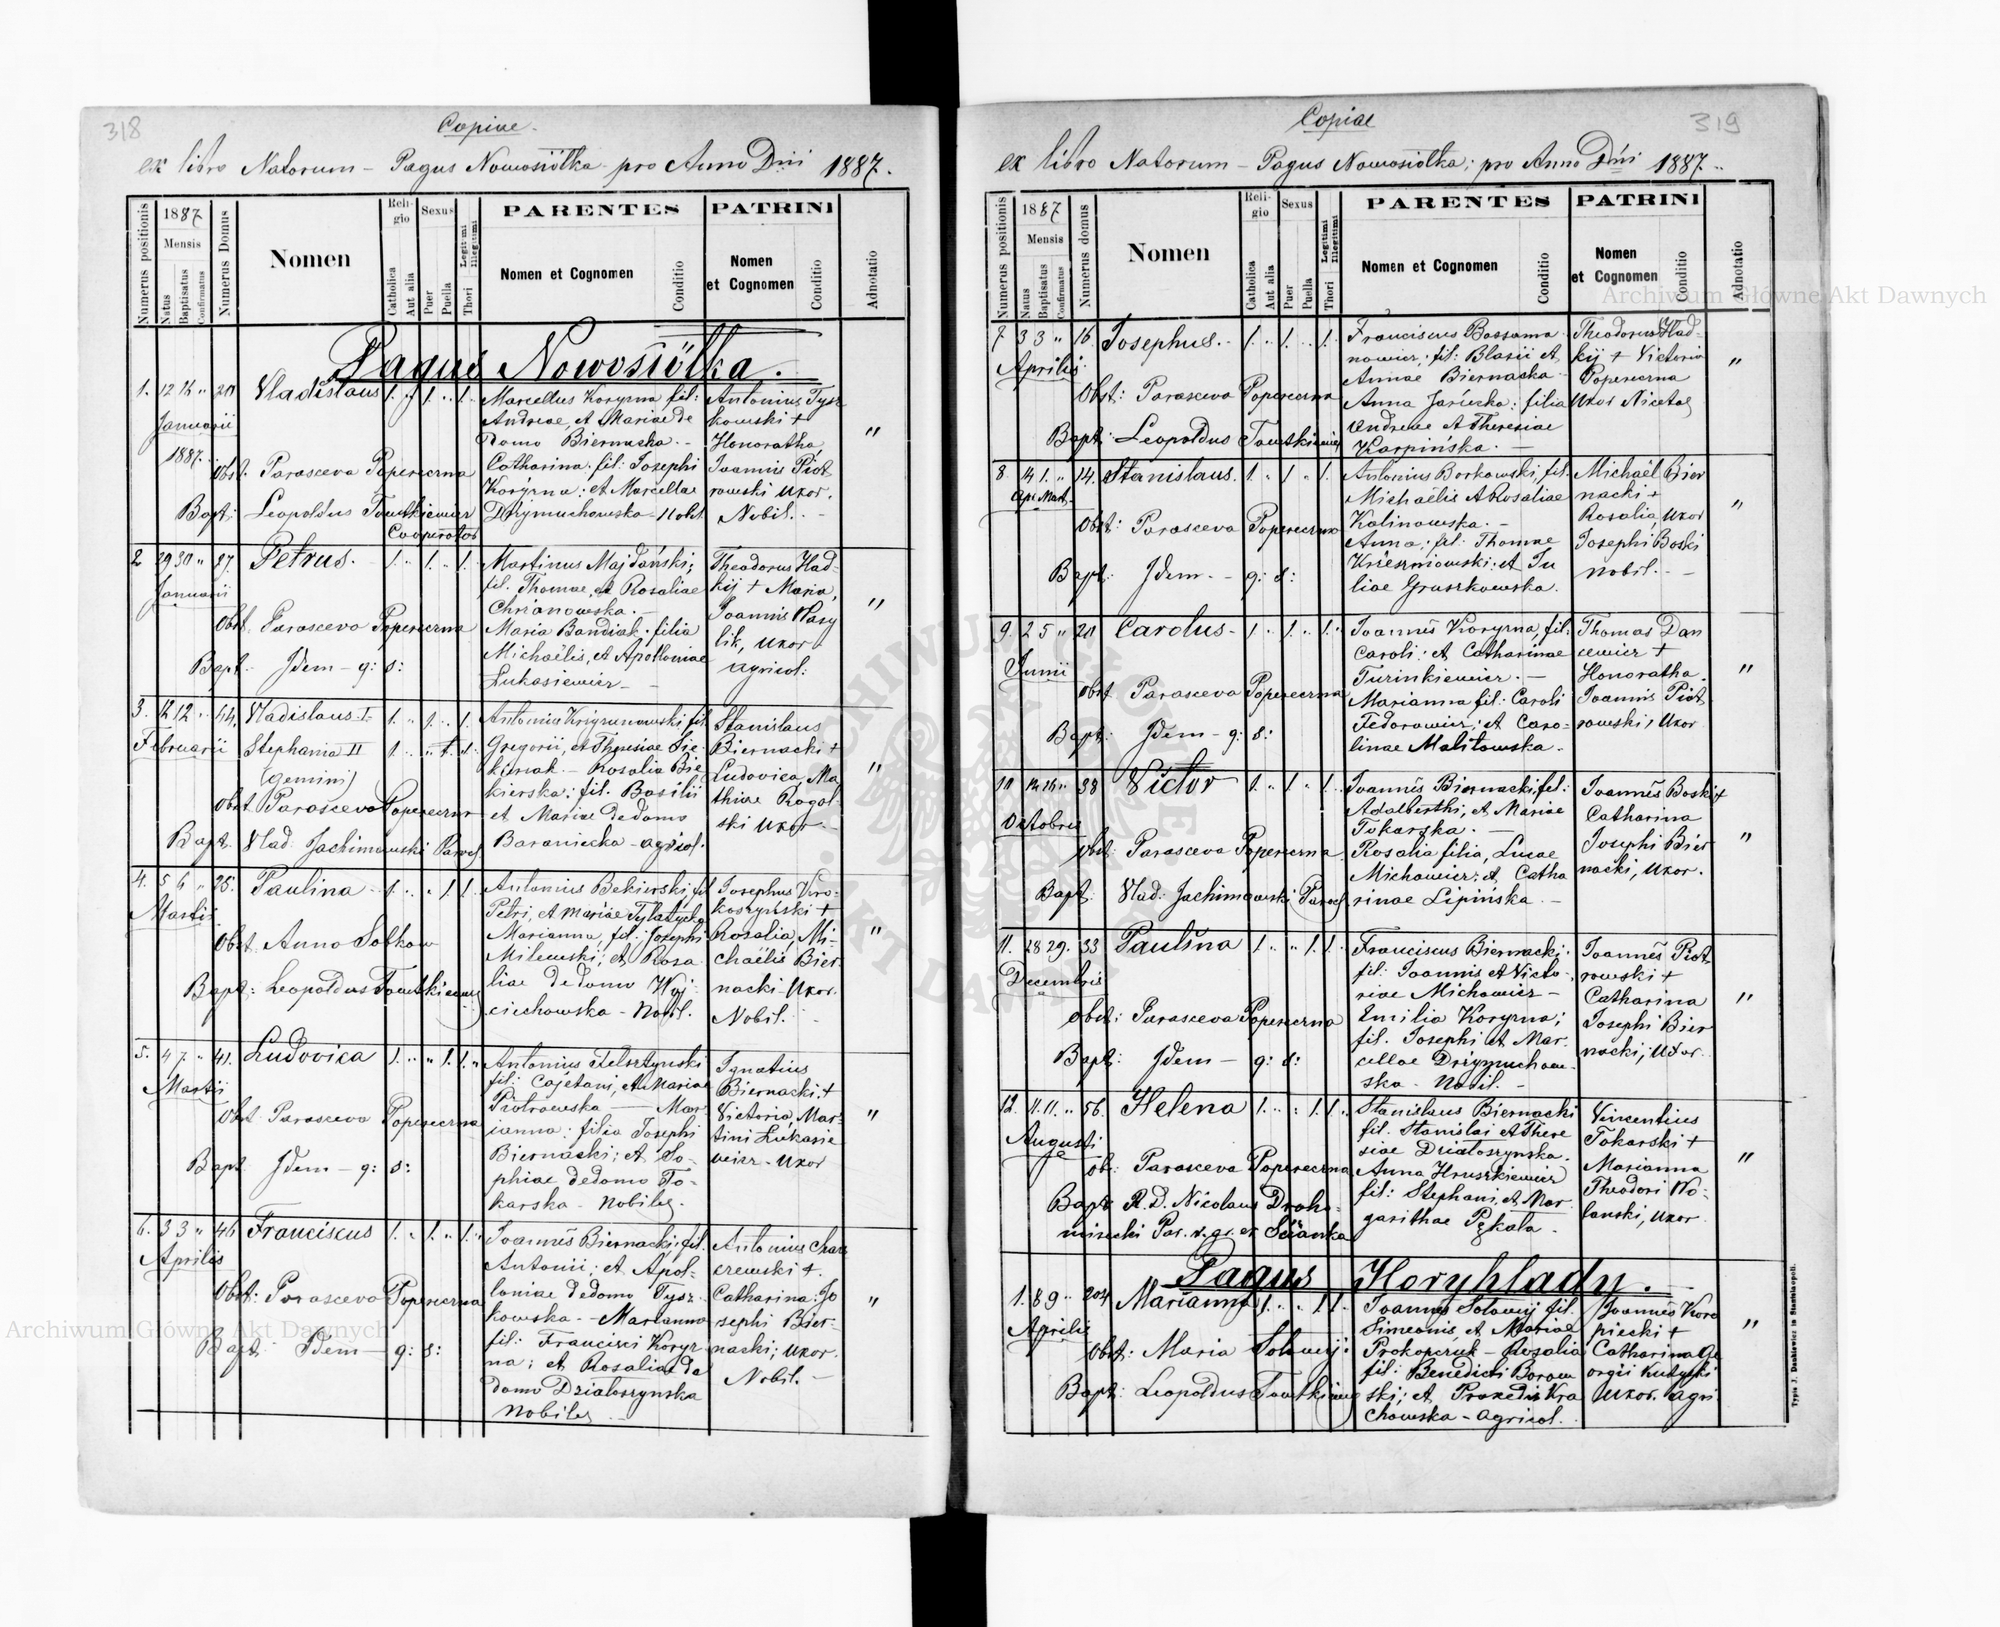 318
Copiae.
ex libro Natorum – Pagus Nowosiółka pro Anno Dni 1887.
Numerus positionis
1887
Mensis
Natus
Baptisatus
Confirmatus
Numerus Domus
Nomen
Religio
Catholica
Aut alia
Sexus
Puer
Puella
Legitimi
Illegitimi
Thori
PARENTES
Nomen et Cognomen
Conditio
PATRINI
Nomen
et Cognomen
Conditio
Adnotatio
Pagus Nowosiółka.
1. 12 16 " 20 Vladislaus 1. " 1. " 1.
Januarii
1887.
Obst. Parasceva Popereczna
Bapt: Leopoldus
Cooperator
Marcellus Koryzna fil:
Andreae, et Mariae de
Domo Biernacka. –
Catharina: fil: Josephi
Koryzna: et Marcellae
Drzymuchowska
Antonius Tysz
kowski +
Honoratha
Joannis Piot
rowski uxor.
Nobil. –
"
2 29 30 " 27 Petrus. – 1. " 1. " 1.
Januarii
Obst. Parasceva Popereczna
Bapt. Idem – q: s:
Martinus Majdański;
fil. Thomae, et Rosaliae
Chrzanowska. –
Maria Bandiak: filia
Michaëlis, et Apolloniae
Łukasiewicz –
Theodorus Had
kij + Maria,
Joannis Wasy
lik, uxor
agricol:
"
3. 12 12 " 44. Vladislaus I. 1. " 1. " 1.
Februarii Stephania II 1. " " 1. 1.
(gemini)
Obst. Parasceva Popereczna
Bapt. Vlad. Jachimowski Paroch
Gregorii, et Theresiae
Rosalia Bie
kierska: fil. Basilii
et Mariae de domo
Baraniecka – agricol.
Stanislaus
Biernacki +
Ludovica, Ma
thiae Rogal
ski uxor –
"
4. 5 6 " 25. Paulina 1. " " 1. 1.
Martii
Obst. Anna Sołkow
Bapt: Leopoldus
Antonius Bekierski fil
Petri, et Mariae
Marianna, fil: Josephi
Milewski; et Rosa
liae de domo Woj
ciechowska – Nobil.
Josephus
+
Rosalia, Mi-
chaëlis Bier
nacki – uxor.
Nobil.
"
5. 4 7. " 41. Ludovica 1. " " 1. 1. "
Martii
Obst Parasceva Popereczna
Bapt. Idem – q: s:
Antonius Felsztynski
fil: Cajetani, et Mariae
Piotrowska — Mar
ianna: filia Josephi
Biernacki; et So-
phiae de domo To-
karska – Nobiles.
Ignatius
Biernacki. +
Victoria, Mar-
tini Łukasie
wicz – uxor
"
6. 3 3 " 46 Franciscus 1. " 1. " 1. "
Aprilis
Obst: Parasceva Popereczna
Bapt. Idem – q: s:
Joannes Biernacki; fil.
Antonii; et Apol-
loniae de domo Tysz-
kowska – Marianna
fil: Francisci Koryz
na; et Rosaliae de
domo Działoszynska
Nobiles –
Antonius
+.
Catharina: Jo
sephi Bier-
nacki; uxor.
Nobil. –
"
319
Copiae
ex libro Natorum – Pagus Nowosiółka; pro Anno Dni 1887.
Numerus positionis
1887
Mensis
Natus
Baptisatus
Confirmatus
Numerus domus
Nomen
Religio
Catholica
Aut alia
Sexus
Puer
Puella
Legitimi
Illegitimi
Thori
PARENTES
Nomen et Cognomen
Conditio
PATRINI
Nomen
et Cognomen
Conditio
Adnotatio
7 3 3 " 16. Josephus. – 1. " 1. " 1.
Aprilis
Obst: Parasceva Popereczna
Bapt: Leopoldus
Franciscus Bossama
nowicz; fil: Blasii et
Annae Biernacka –
Anna: filia
Andreae et Theresiae
Karpińska. –
Theodorus Had-
kij + Victoria
Popereczna
uxor Nicetae
"
8. 14 1. " 14. Stanislaus. 1. " 1 " 1.
Obst: Parasceva Popereczna
Bapt. Idem. – q: s:
Antonius Borkowski, fil.
Michaëlis et Rosaliae
Kalinowska. –
Anna; fil: Thomae
et Ju
liae Gruszkowska.
Michaël Bier
nacki +
Rosalia, uxor
Josephi Boski
nobil. –
"
9. 2 5 " 20 Carolus – 1. " 1. " 1.
Junii
obst Parasceva Popereczna
Bapt: Idem – q: s:
Joannes Koryzna, fil:
Caroli: et Catharinae
Turinkiewicz. –
Marianna fil: Caroli
Fedorowicz; et Caro-
linae Malitowska.
Thomas Dan
cewicz +
Honoratha
Joannis Piot
rowski, uxor
"
10 38 Victor 1. " 1 " 1.
Octobris
obst: Parasceva Popereczna.
Bapt: Vlad: Jachimowski Paroch
Joannes Biernacki, fil:
Adalberthi, et Mariae
Tokarska. –
Rosalia filia, Lucae
Michowicz; et Catha
rinae Lipińska. –
Joannes Boski +
Catharina
Josephi Bier
nacki, uxor.
"
11. 28 29. 33 Paulina 1. " " 1. 1.
Decembris
obst: Parasceva Popereczna
Bapt: Idem – q: s:
Franciscus Biernacki;
fil: Joannis et Victo-
riae Michowicz –
Emilia Koryzna;
fil. Josephi et Mar-
cellae Drzymuchow-
ska – Nobil. –
Joannes Piot-
rowski +
Catharina
Josephi Bier
nacki; uxor.
"
12. 11. 11. " 56. Helena 1. " " 1. 1.
Augusti
ob: Parasceva Popereczna
Bapt R. D. Nicolaus Droho-
mirecki Par. r. gr. ex Ścianka
Stanislaus Biernacki
fil. Stanislai et There
siae Działoszynska.
Anna Hruszkiewicz
fil: Stephani, et Mar
garithae Pękala –
Vincentius
Tokarski +
Marianna
Theodori Wo-
lanski, uxor
"
Pagus Horyhlady.
1. 8 9 " 204 Marianna 1. " " 1. 1. "
Aprilis
Obst: Maria Sołowij:
Bapt: Leopoldus
Joannes Sołowij fil.
Simeonis, et Mariae
Prokopczuk – Rosalia
fil: Benedicti Borow
ski; et Praxedis Kra
chowska – agricol.
Joannes Koro
piecki +
Catharina Ge
orgii
uxor. agri
"
Typis J. Dankiewicz in Stanislaopoli.
Archiwum Główne Akt Dawnych
Archiwum Główne Akt Dawnych
ARCHIWUM GŁÓWNE AKT DAWNYCH